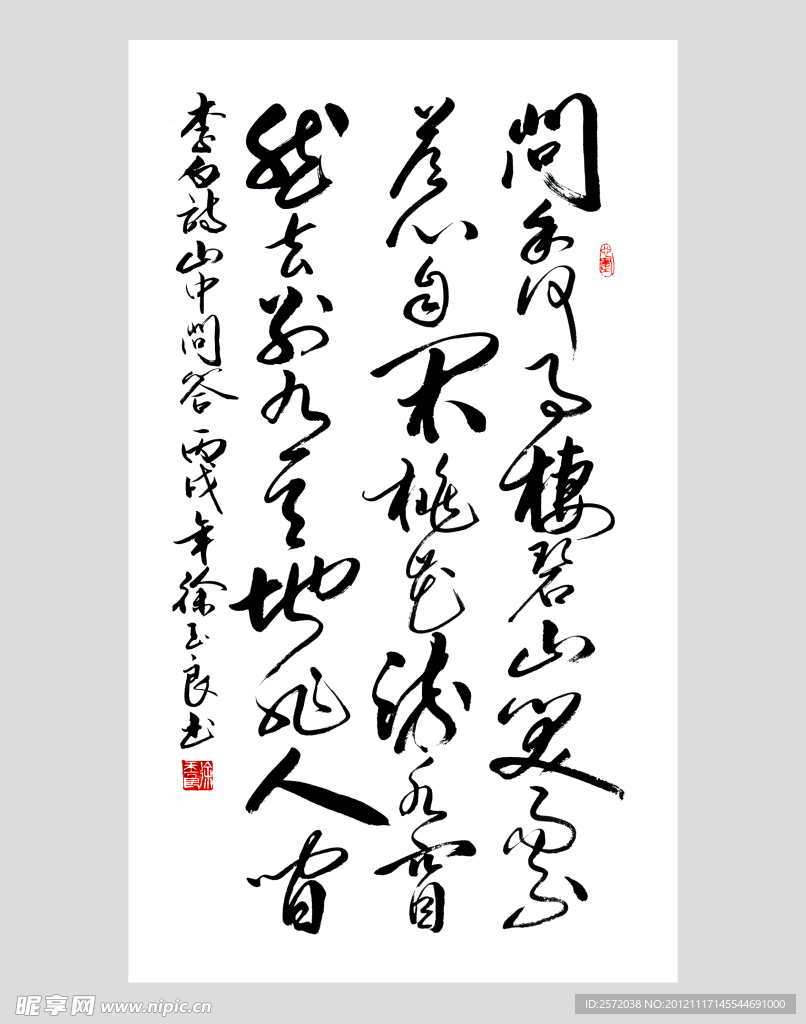 問余何事棲碧山笑而不
答心自閑桃花流水窅
然去別有天地非人間
李白詩山中問答 丙戌年徐玉良书
昵享网 www.nipic.cn
ID:2572038 NO:20121117145544691000